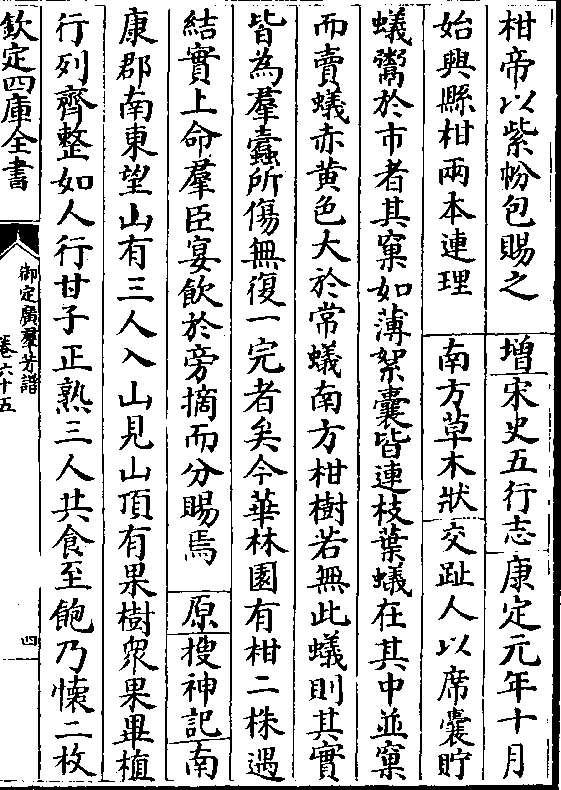 柑帝以紫帉包賜之　增宋史五行志康定元年十月
始興縣柑兩本連理　南方草木狀交趾人以席囊貯
蟻鬻於市者其窠如薄絮囊皆連枝葉蟻在其中並窠
而賣蟻赤黄色大於常蟻南方柑樹若無此蟻則其實
皆為羣蠧所傷無復一完者矣今華林園有柑二株遇
結實上命羣臣宴飲於旁摘而分賜焉　原搜神記南
康郡南東望山有三人入山見山頂有果樹衆果畢植
行列齊整如人行甘子正熟三人共食至飽乃懐二枚
欽定四庫全書
御定廣羣芳譜
卷六十五
四